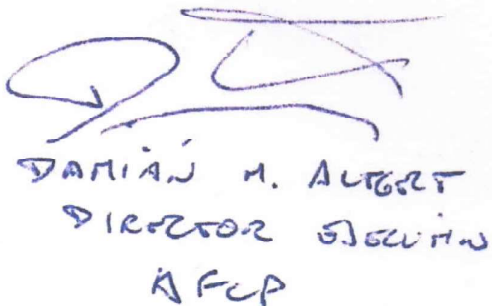 DAMIÁN M. ALTGELT
DIRECTOR EJECUTIVO
AFCP